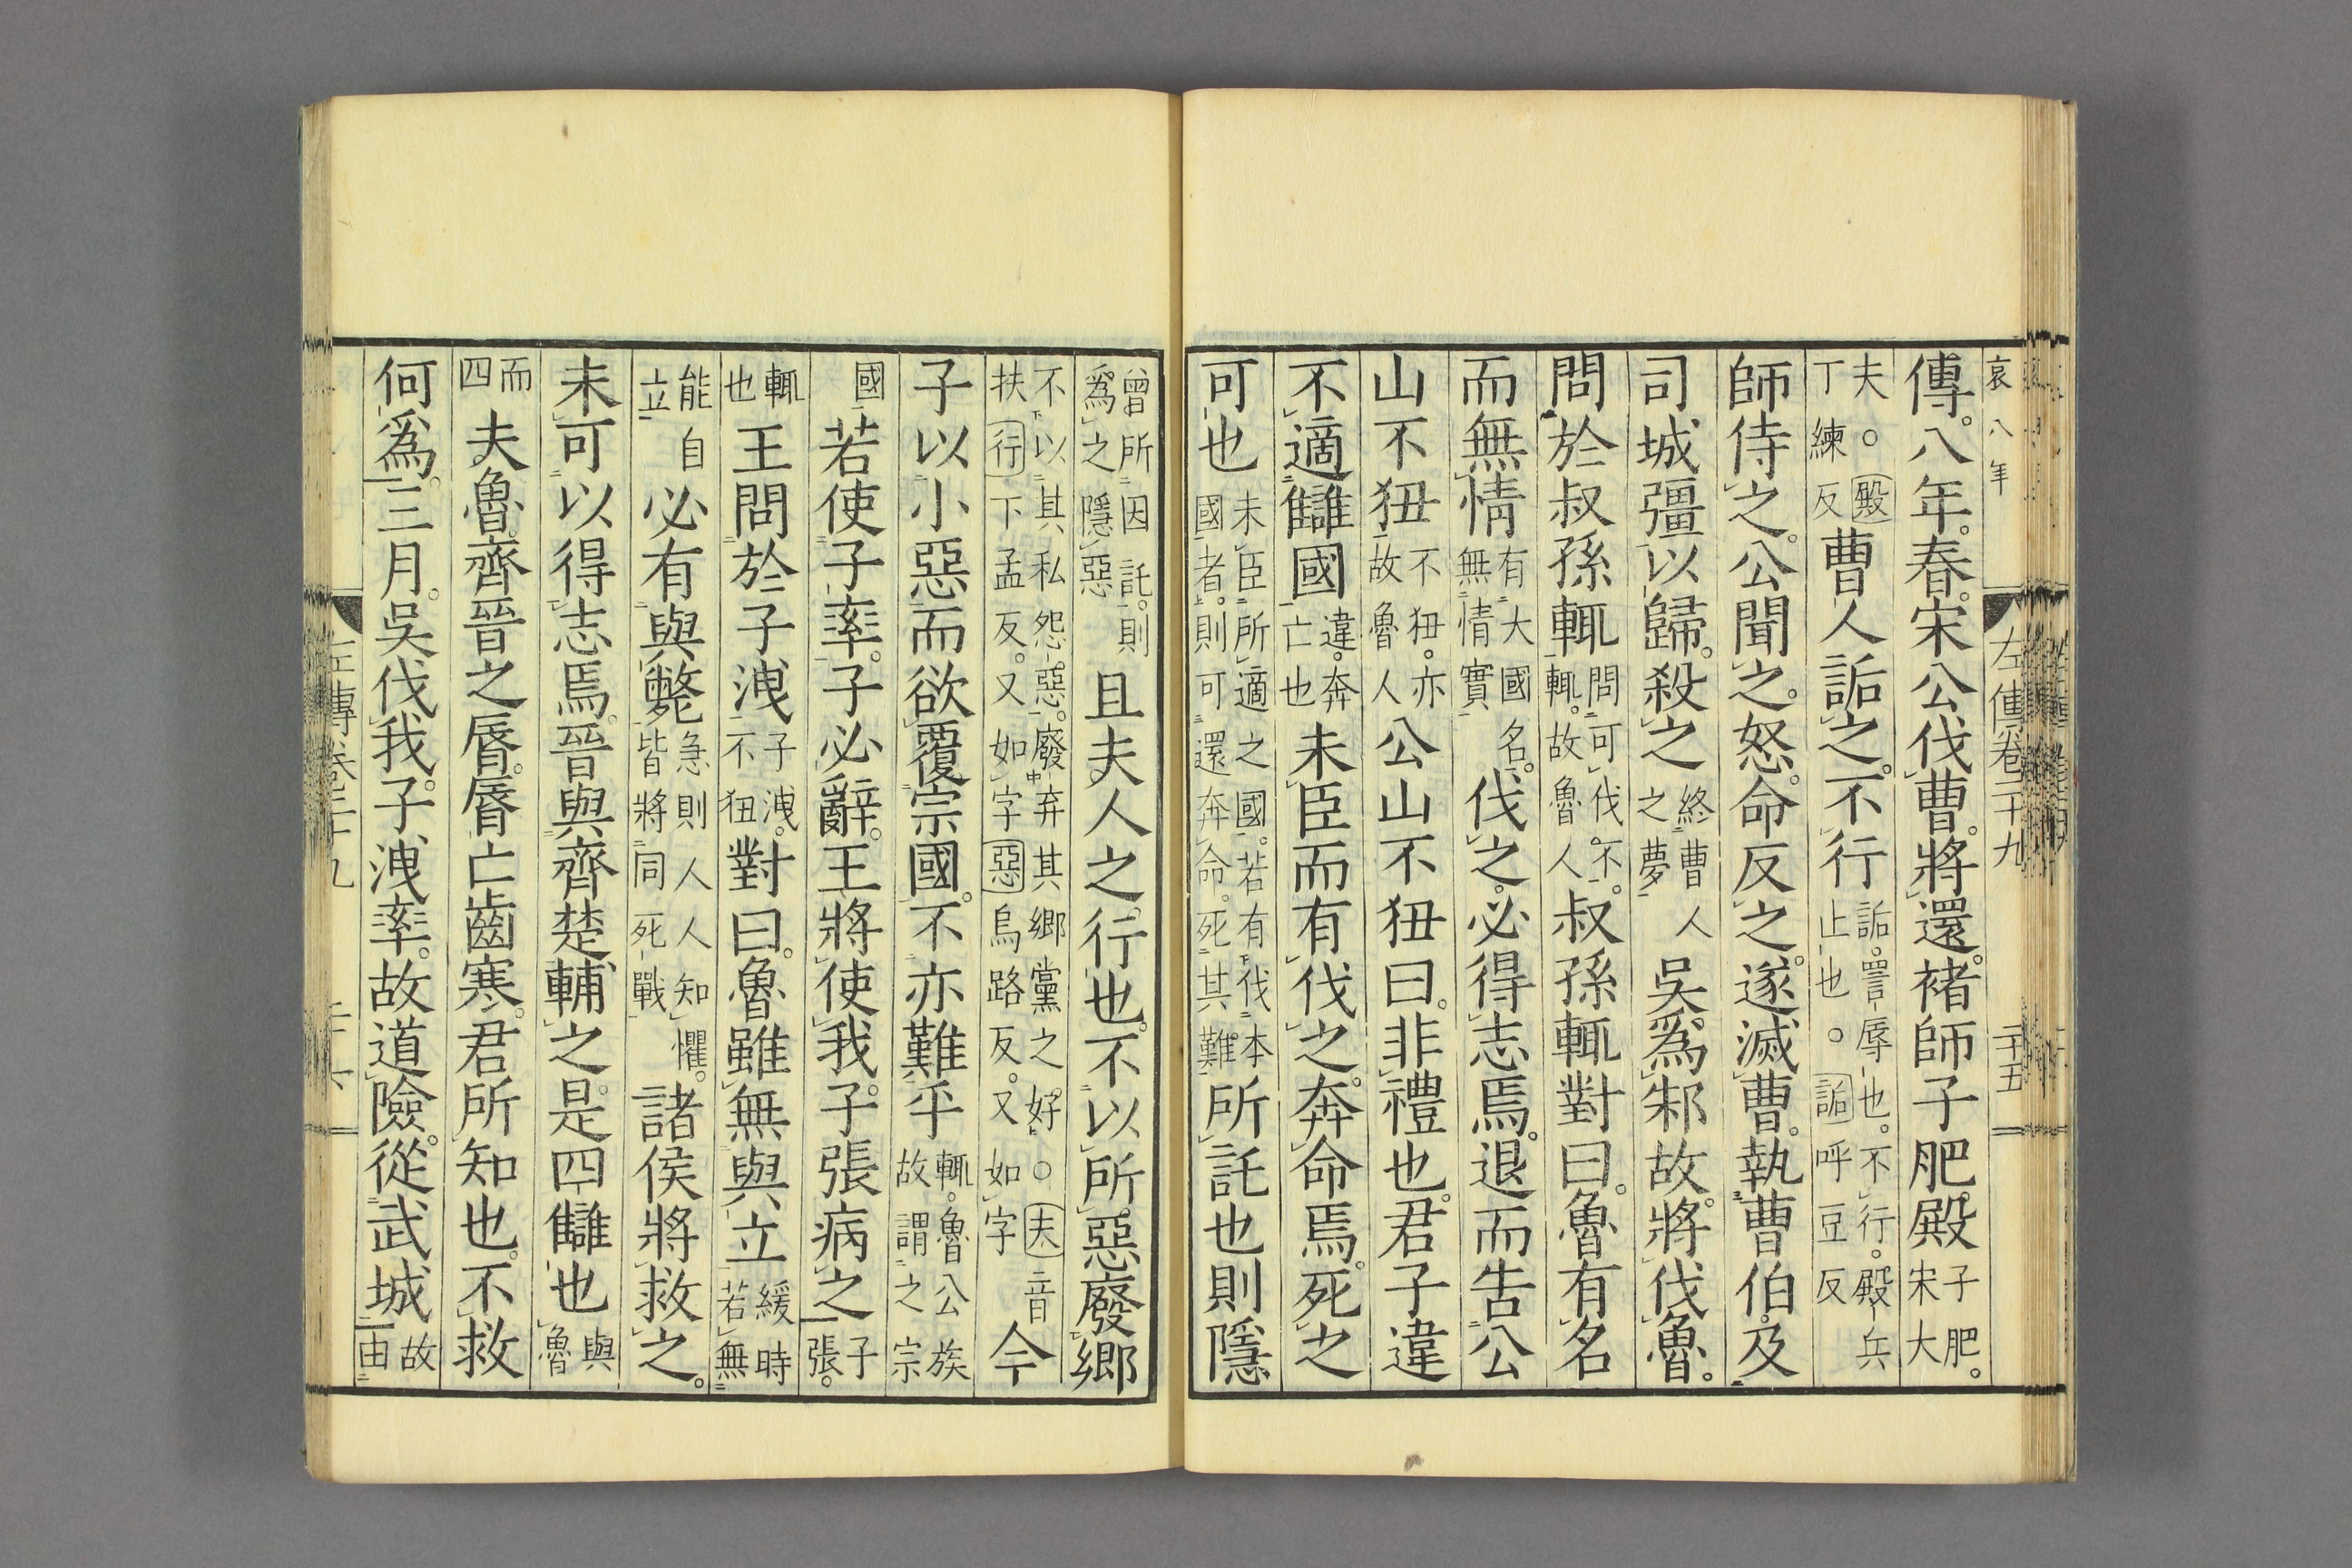 哀八年
左傳卷二十九　二十五
傳。八年。春。宋公伐曹。將還。褚師子肥殿子肥。宋大
夫。○殿丁練反曹人詬之。不行詬。詈辱也。不行。殿兵止也。○詬呼豆反
師待之。公聞之。怒。命反之。遂滅曹。執曹伯。及
司城彊以歸。殺之終曹人之夢吳爲邾故。將伐魯。
問於叔孫輒問可伐。不。輒。故魯人叔孫輒對曰。魯有名
而無情有大國名。無情實伐之。必得志焉。退而告公
山不狃不狃。亦故魯人公山不狃曰。非禮也。君子違
不適讎國違。奔亡也未臣而有伐之。奔命焉。死之
可也未臣所適之國。若有伐本國者。則可還奔命。死其難所託也則隱
曾所因託。則爲之隱惡且夫人之行也。不以所惡廢鄉
不以其私怨惡。廢弃其鄉黨之好。○夫音扶行下孟反。又如字惡烏路反。又如字今
子以小惡而欲覆宗國。不亦難乎輒。魯公族故謂之宗
國若使子率。子必辭。王將使我。子張病之子張。
輒也王問於子洩子洩。不狃對曰。魯雖無與立緩時若無
能自立必有與斃急則人人知懼。皆將同死戰諸侯將救之。
未可以得志焉。晉與齊楚輔之。是四讎也與魯
而四夫魯。齊晉之脣。脣亡齒寒。君所知也。不救
何爲。三月。吳伐我。子洩率。故道險。從武城故由
左傳卷二十九　二十六